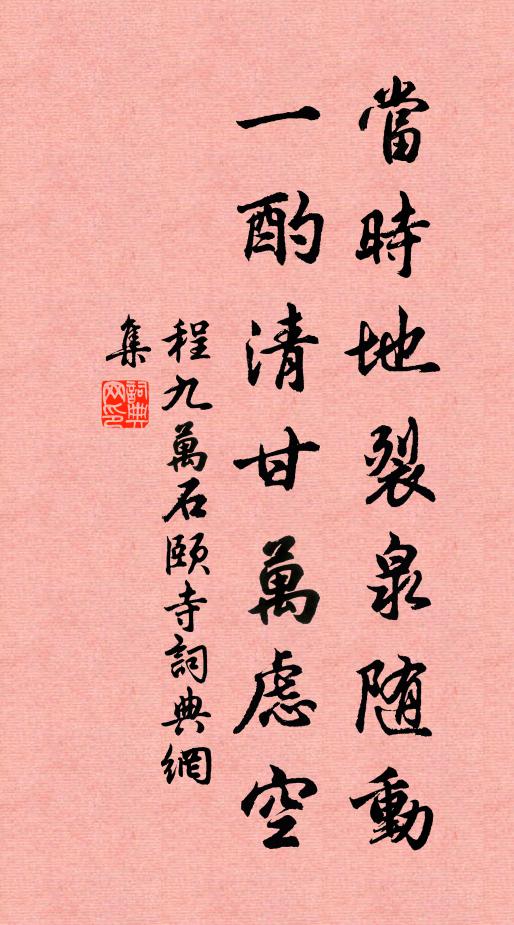 當時地裂泉随動
一酌清甘萬慮空
程九萬石頤寺詞典網
集
詞典
网印